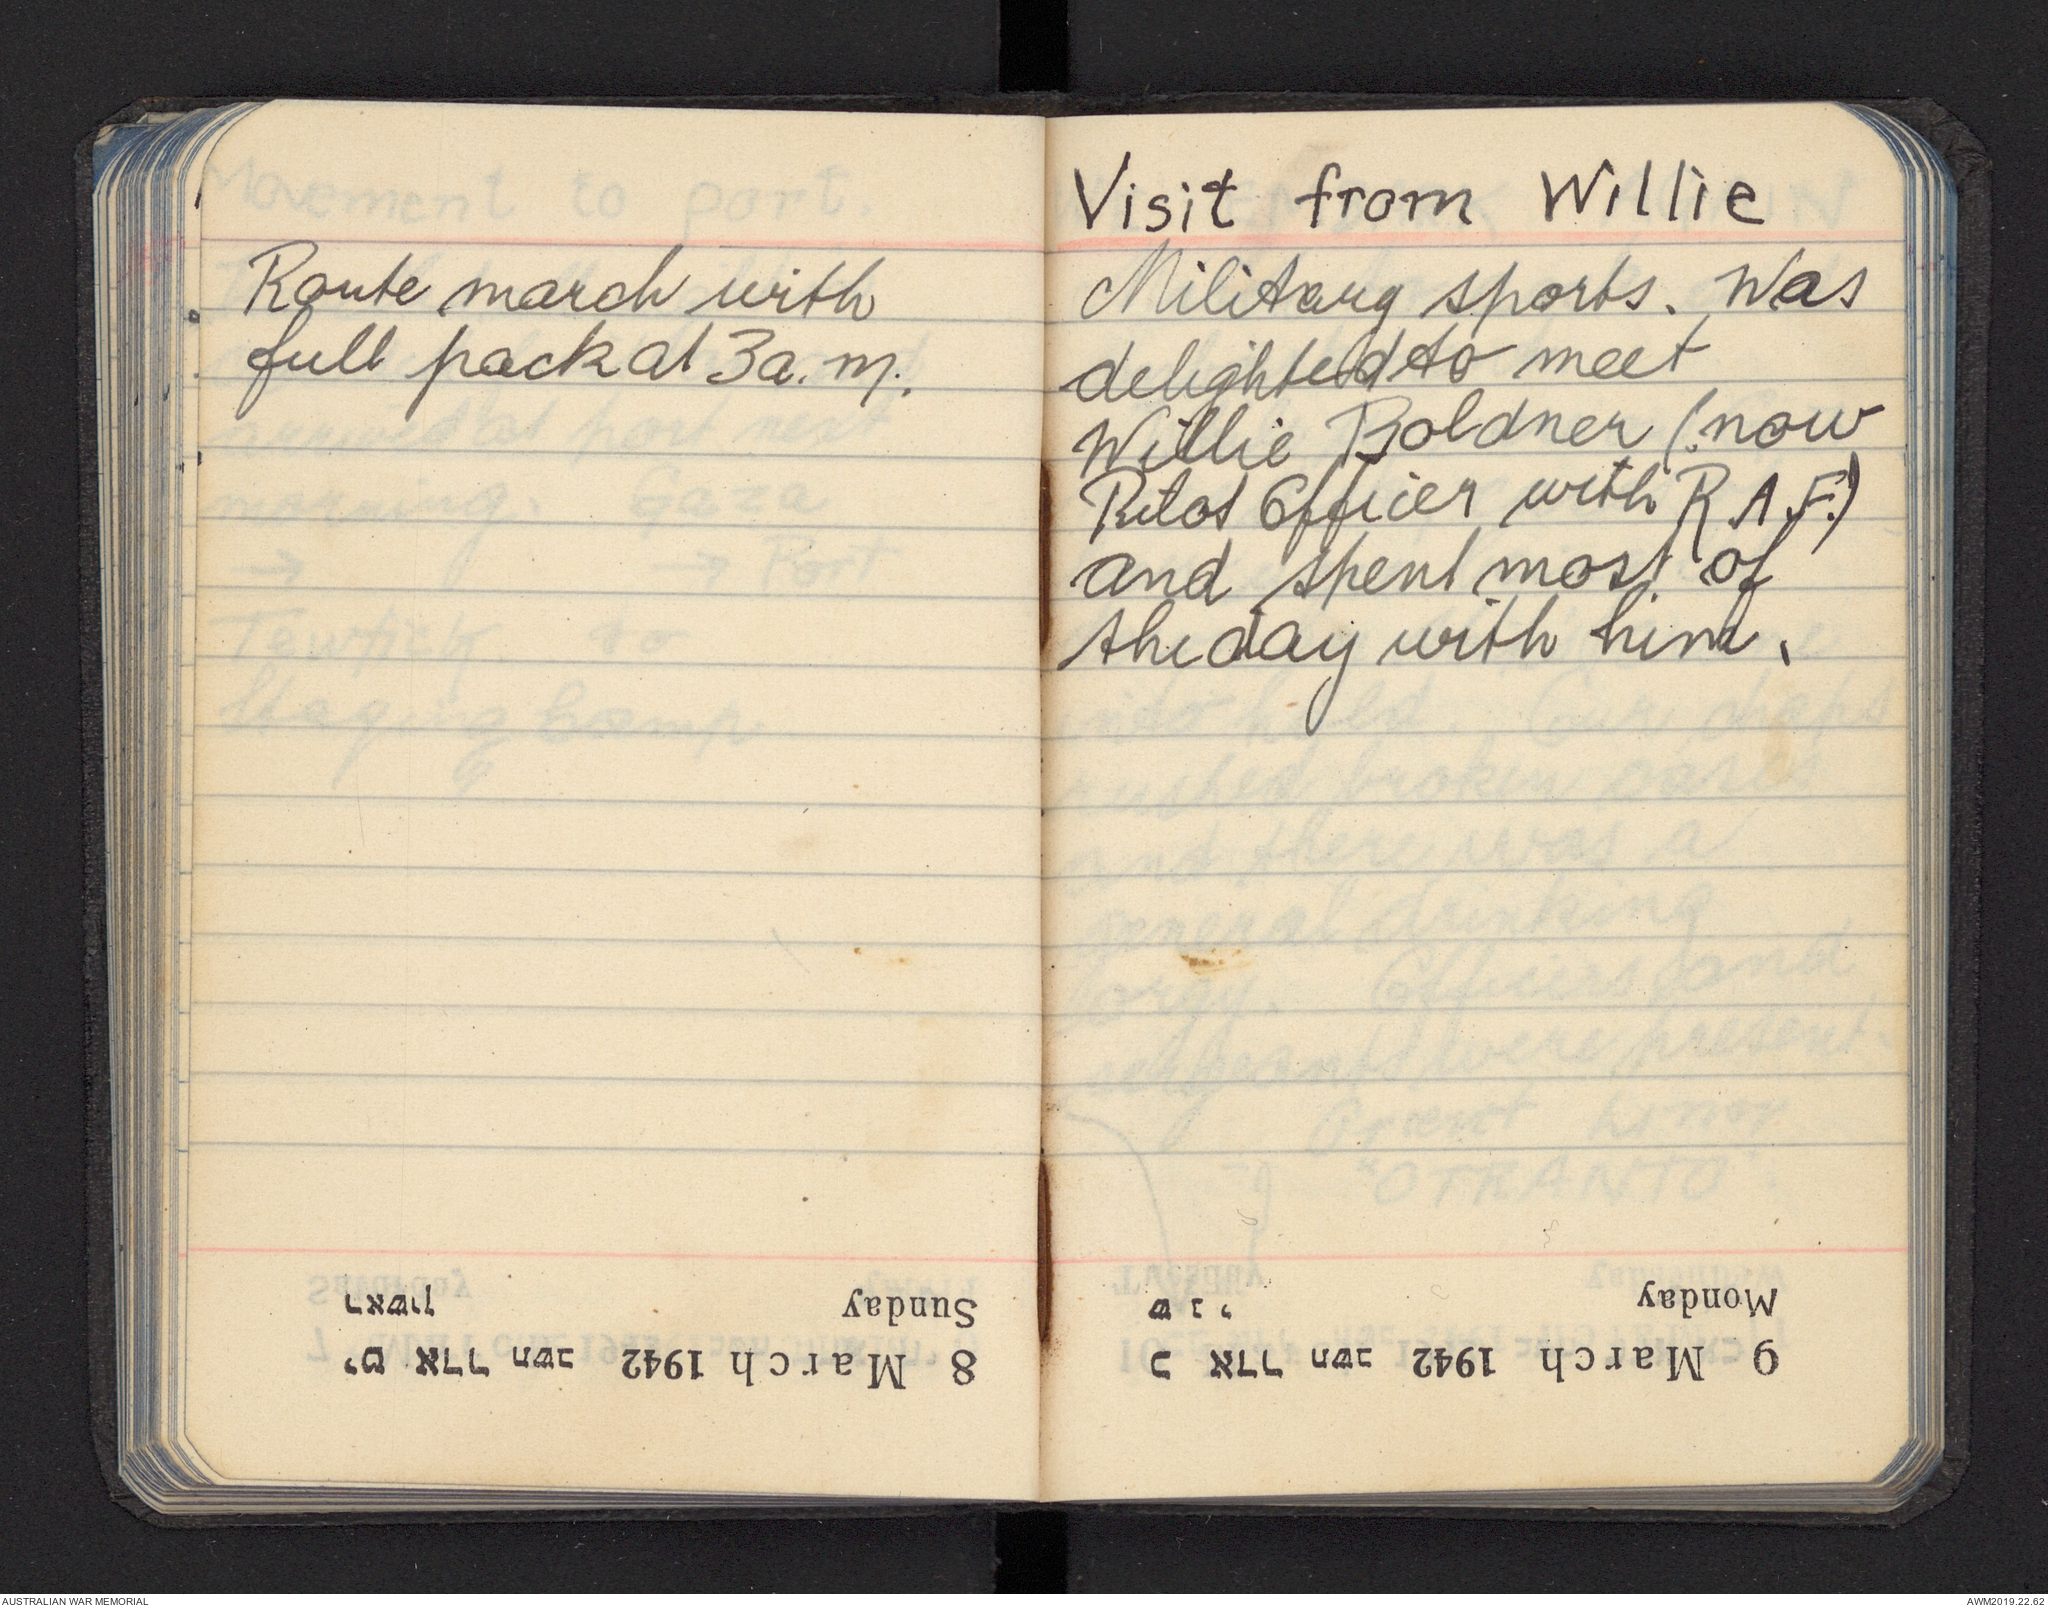 Route march with
full pack at 3a.m.
ראשון Sunday
י"ט אדר תשב 1942 March 8
Visit from Willie
Military sports. Was
delighted to meet
Willie Boldner (now
Pilot Officer with R.A.F.)
and spent most of
the day with him.
שני Monday
כ אדר תשב 1942 March 9
AUSTRALIAN WAR MEMORIAL
AWM2019.22.62